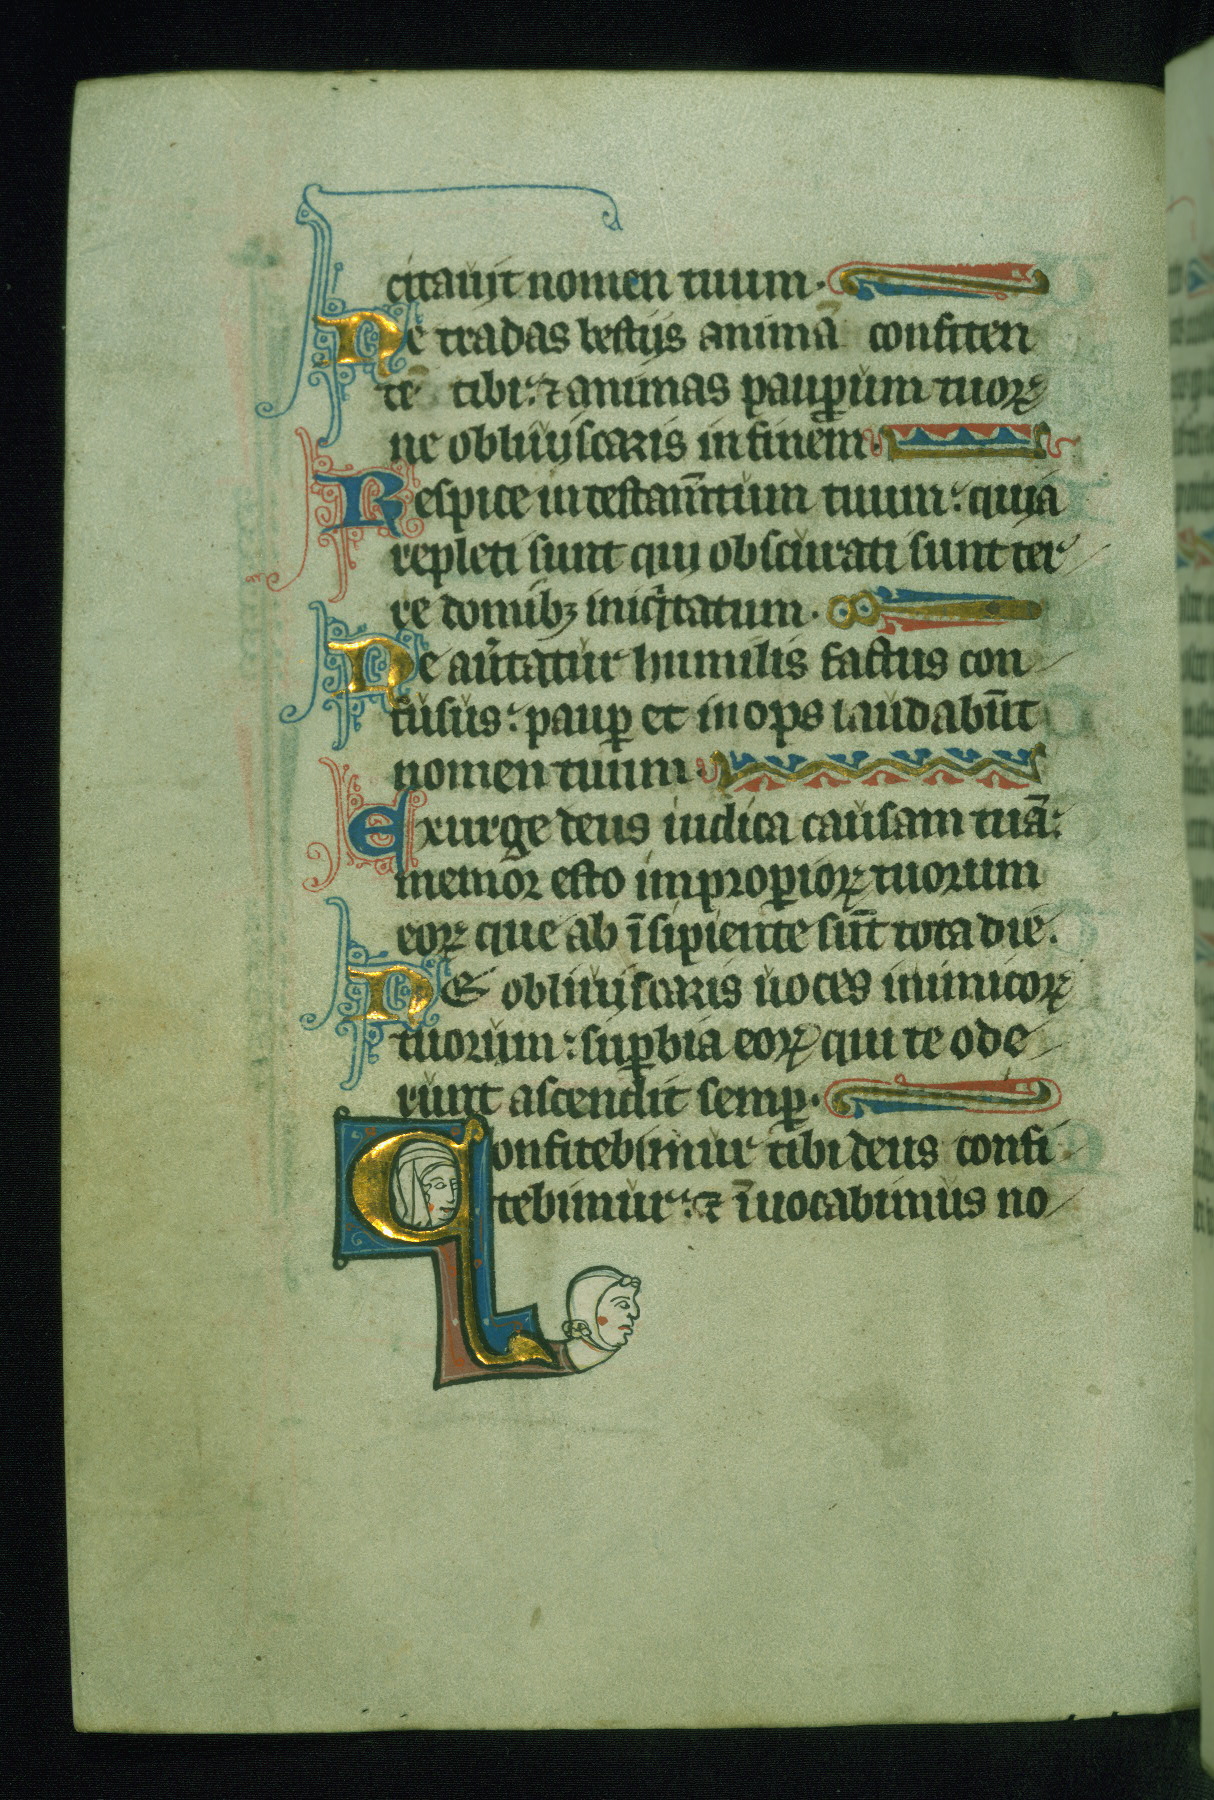 citauit nomen tuum.
Ne tradas bestiis animā confiten
tē tibi: ⁊ animas pauꝑum tuoꝝ
ne obliuiscaris in finem.
Respice in testam̄tum tuum: quia
repleti sunt qui obscurati sunt ter
re domibꝫ iniq̇tatum.
Ne au̾tatur humilis factus con
fusus: pauꝑ et inops laudabūt
nomen tuum.
Exurge deus iudica causam tuā:
memor esto improꝑioꝝ tuorum
eoꝝ que ab īsipiente sūt tota die.
Ne obliuiscaris uoces inimicoꝝ
tuorum: suꝑbia eoꝝ qui te ode
runt ascendit semꝑ.
Confitebimur tibi deus confi
tebimur: ⁊ īuocabimus no